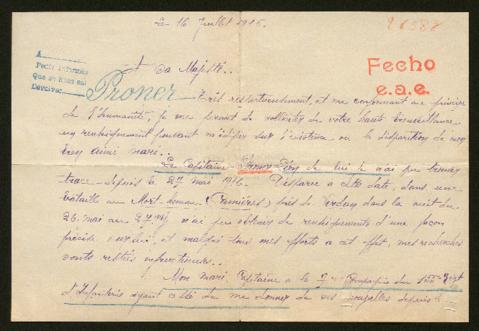 Le 16 Juillet 1916.
26588
A
Fecho
e.a.e.
A Sa Majesté..
Proner
Très respectueusement, et me conformant au principe
de l'humanité, je me permet de solliciter de votre haute bienveillance
un renseignement pouvant m'édifier sur l'existence ou la disparition de mon
bien aimé mari..
Le Capitaine Proner Léon de lui je n'ai pu trouver
trace depuis le 27 mai 1916. Disparu à cette date, dans une
bataille au Mort-homme (Cumières) près de Verdun dans la nuit du
26 mai au 27, n'ai pu obtenir de renseignements d'une façon
précise sur lui, et malgré tous mes efforts à cet effet, mes recherches
sont restées infructueuses..
Mon mari Capitaine à la Compagnie du Régt
d'Infanterie ayant cessé de me donner de ses nouvelles depuis le